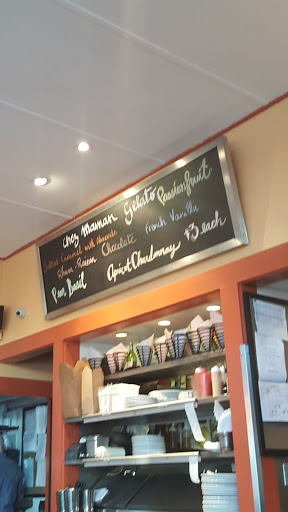 Chez Maman Gelato Passionfruit
Salted Caramel with Almonds
Rhum-Raisin Chocolate French Vanilla
Pear Basil Apricot Chardonnay $3 each